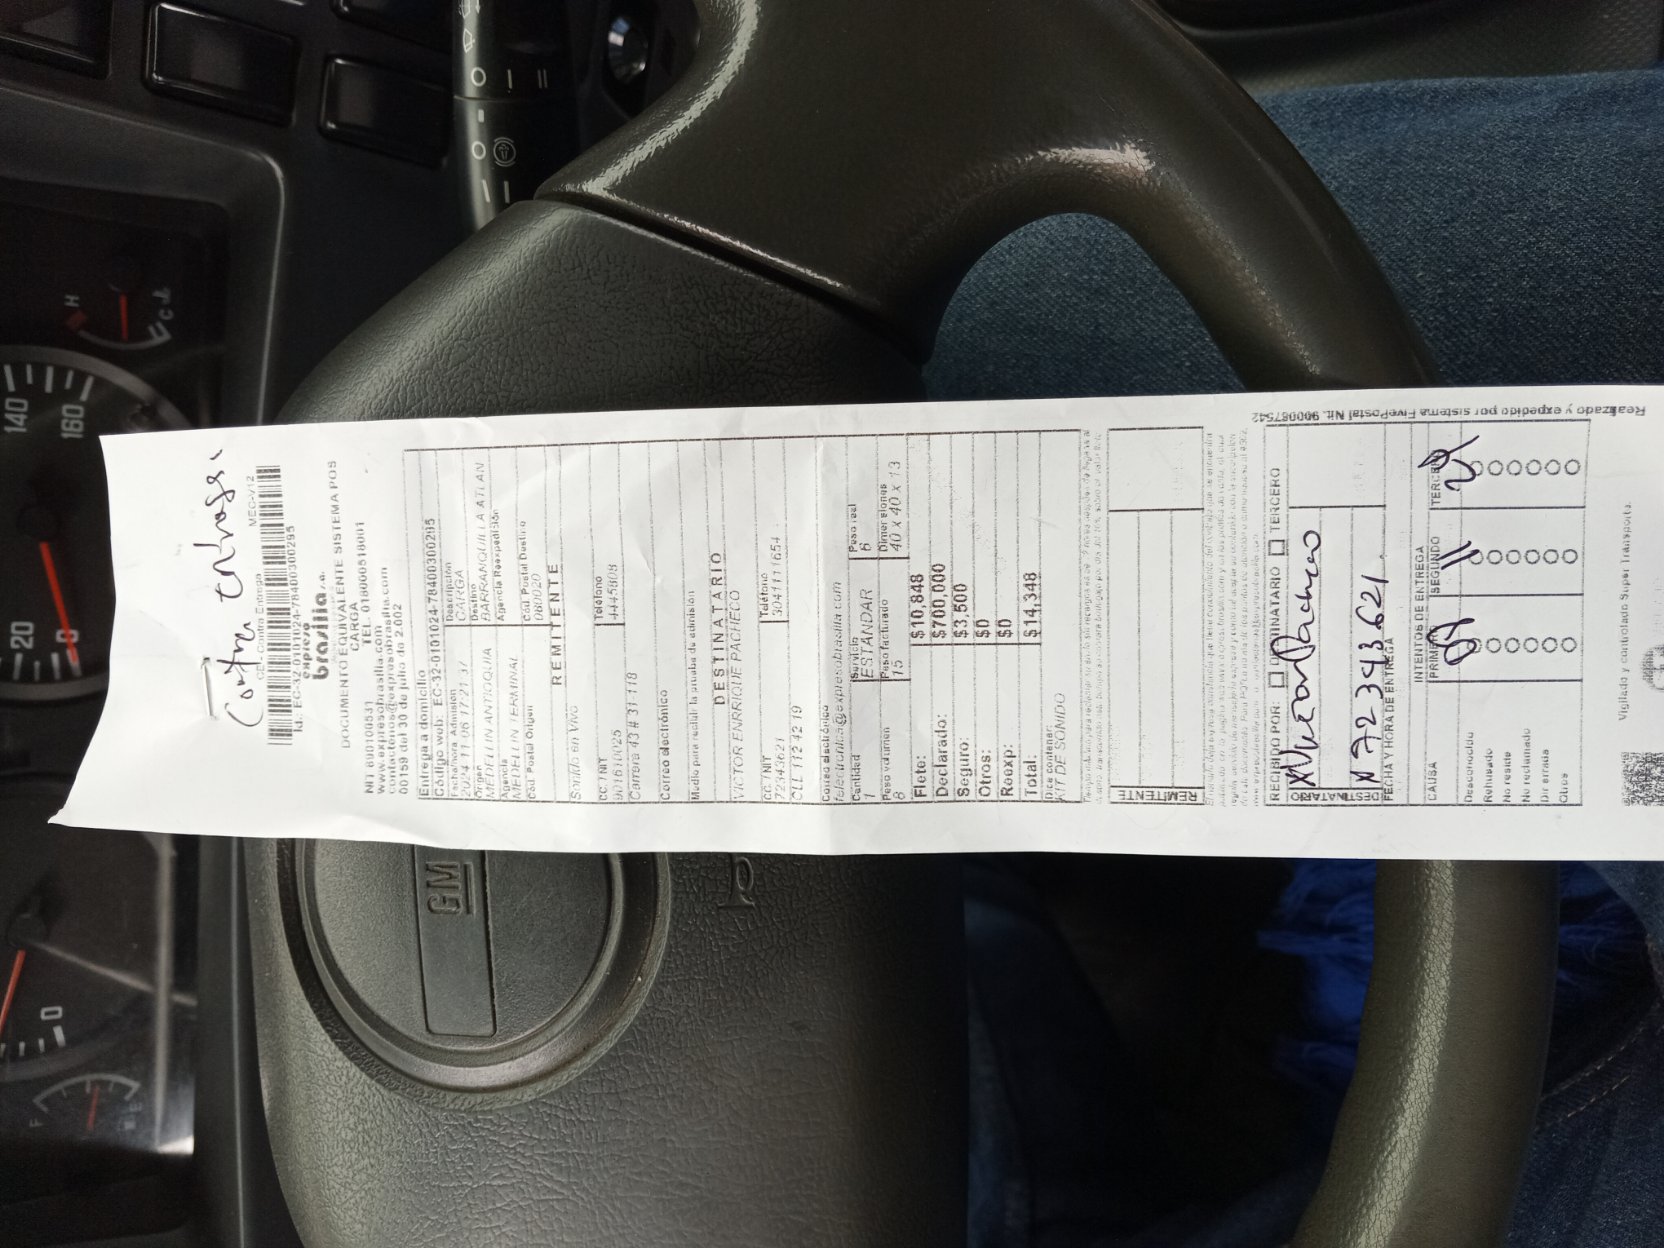 Contra entrega.
MEC-V12
CE- Contra Entrega
Id.: EC-32-0101024-78400300295
expreso
brasilia s.a.
DOCUMENTO EQUIVALENTE SISTEMA POS
CARGA
NIT 890100531 TEL. 018000518001
www.expresobrasilia.com
contactenos@expresobrasilia.com
00159 del 30 de julio de 2.002
Entrega a domicilio
Código web: EC-32-0101024-78400300295
Fecha/hora Admisión Descripción
2024-11-06 17:21:37 CARGA
Origen Destino
MEDELLIN ANTIOQUIA BARRANQUILLA ATLAN
Agencia Agencia Reexpedición
MEDELLIN TERMINAL
Cód. Postal Origen Cód. Postal Destino
080020
REMITENTE
Sonido en Vivo
CC. / NIT Teléfono
901610025 4445808
Carrera 43 # 31-118
Correo electrónico
Medio para recibir la prueba de admisión
DESTINATARIO
VICTOR ENRRIQUE PACHECO
CC. / NIT Teléfono
72343621 3041111654
CLL 112 42 19
Correo electrónico
telectronica@expresobrasilia.com
Cantidad Servicio Peso real
1 ESTANDAR 6
Peso volumen Peso facturado Dimensiones
8 15 40 x 40 x 13
Flete: $10,848
Declarado: $700,000
Seguro: $3,500
Otros: $0
Reexp: $0
Total: $14,348
Dice contener:
KIT DE SONIDO
REMITENTE
RECIBIDO POR: DESTINATARIO TERCERO
DESTINATARIO
Victor Pacheco
72343621
FECHA Y HORA DE ENTREGA
INTENTOS DE ENTREGA
CAUSA PRIMERO SEGUNDO TERCERO
09 11 24
Desconocido
Rehusado
No reside
No reclamado
Dir errada
Otros
Vigilado y controlado Super Transporte.
Realizado y expedido por sistema FivePostal Nit. 900087542
GM
140
160
20
0
H
C
F
0